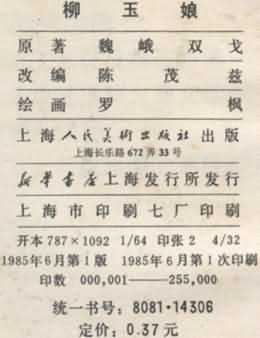 柳玉娘
原著 魏峨 双戈
改编 陈茂兹
绘画 罗枫
上海人民美術出版社出版
上海长乐路672弄33号
新華書店上海发行所发行
上海市印刷七厂印刷
开本787×1092 1/64 印张2 4/32
1985年6月第1版 1985年6月第1次印刷
印数 000,001——255,000
统一书号：8081·14306
定价：0.37元